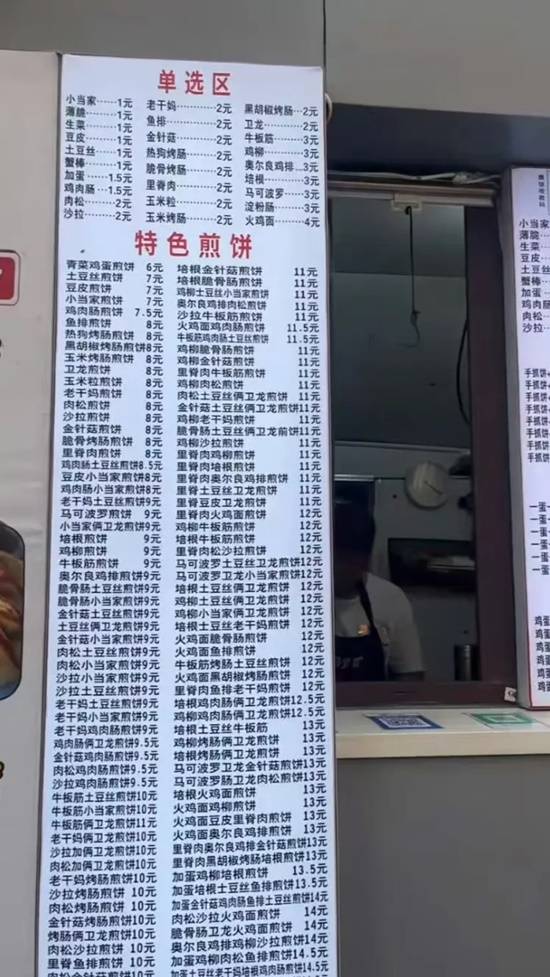 单选区
小当家……1元
薄脆……1元
生菜……1元
豆皮……1元
土豆丝……1元
蟹棒……1元
加蛋……1.5元
鸡肉肠……1.5元
肉松……2元
沙拉……2元
老干妈……2元
鱼排……2元
金针菇……2元
热狗烤肠……2元
脆骨烤肠……2元
里脊肉……2元
玉米粒……2元
玉米烤肠……2元
黑胡椒烤肠…2元
卫龙……2元
牛板筋……3元
鸡柳……3元
奥尔良鸡排…3元
培根……3元
马可波罗……3元
淀粉肠……3元
火鸡面……4元
特色煎饼
青菜鸡蛋煎饼 6元
土豆丝煎饼 7元
豆皮煎饼 7元
小当家煎饼 7元
鸡肉肠煎饼 7.5元
鱼排煎饼 8元
热狗烤肠煎饼 8元
黑胡椒烤肠煎饼8元
玉米烤肠煎饼 8元
卫龙煎饼 8元
玉米粒煎饼 8元
老干妈煎饼 8元
肉松煎饼 8元
沙拉煎饼 8元
金针菇煎饼 8元
脆骨烤肠煎饼 8元
里脊肉煎饼 8元
鸡肉肠土豆丝煎饼8.5元
豆皮小当家煎饼8元
鸡肉肠小当家煎饼8元
老干妈土豆丝煎饼9元
马可波罗煎饼 9元
小当家俩卫龙煎饼9元
培根煎饼 9元
鸡柳煎饼 9元
牛板筋煎饼 9元
奥尔良鸡排煎饼9元
脆骨肠土豆丝煎饼9元
脆骨肠小当家煎饼9元
金针菇土豆丝煎饼9元
金针菇小当家煎饼9元
肉松土豆丝煎饼9元
肉松小当家煎饼9元
沙拉小当家煎饼9元
沙拉土豆丝煎饼9元
老干妈土豆丝煎饼9元
老干妈小当家煎饼9元
老干妈鸡肉肠煎饼9元
鸡肉肠俩卫龙煎饼9.5元
金针菇鸡肉肠煎饼9.5元
肉松鸡肉肠煎饼9.5元
沙拉鸡肉肠煎饼9.5元
牛板筋土豆丝煎饼10元
牛板筋小当家煎饼10元
牛板筋俩卫龙煎饼11元
老干妈俩卫龙煎饼10元
沙拉加俩卫龙煎饼10元
肉松加俩卫龙煎饼10元
老干妈烤肠煎饼 10元
沙拉烤肠煎饼 10元
肉松烤肠煎饼 10元
金针菇烤肠煎饼 10元
烤肠俩卫龙煎饼 10元
沙拉肉松煎饼 10元
里脊鱼排煎饼 10元
培根金针菇煎饼 11元
培根脆骨肠煎饼 11元
鸡柳土豆丝小当家煎饼 11元
奥尔良鸡排肉松煎饼 11元
沙拉牛板筋煎饼 11元
火鸡面鸡肉肠煎饼 11.5元
牛板筋鸡肉肠土豆丝煎饼 11.5元
鸡柳脆骨肠煎饼 11元
鸡柳金针菇煎饼 11元
里脊肉牛板筋煎饼 11元
鸡柳肉松煎饼 11元
肉松土豆丝俩卫龙煎饼 11元
金针菇土豆丝俩卫龙煎饼11元
鸡柳老干妈煎饼 11元
脆骨肠土豆丝俩卫龙前饼11元
鸡柳沙拉煎饼 11元
里脊肉鸡柳煎饼 11元
里脊肉培根煎饼 11元
里脊肉奥尔良鸡排煎饼 11元
里脊土豆丝卫龙煎饼 11元
里脊豆皮卫龙煎饼 11元
里脊肉火鸡面煎饼 12元
鸡柳牛板筋煎饼 12元
培根牛板筋煎饼 12元
里脊肉松沙拉煎饼 12元
马可波罗土豆丝卫龙煎饼12元
马可波罗卫龙小当家煎饼12元
培根土豆丝俩卫龙煎饼 12元
鸡柳土豆丝俩卫龙煎饼 12元
鸡柳小当家俩卫龙煎饼 12元
培根土豆丝老干妈煎饼 12元
火鸡面脆骨肠煎饼 12元
火鸡面鱼排煎饼 12元
牛板筋烤肠土豆丝煎饼 12元
火鸡面黑胡椒烤肠煎饼 12元
里脊肉鱼排老干妈煎饼 12元
培根鸡肉肠俩卫龙煎饼12.5元
鸡柳鸡肉肠俩卫龙煎饼12.5元
培根土豆丝牛板筋 13元
鸡柳烤肠俩卫龙煎饼 13元
培根烤肠俩卫龙煎饼 13元
马可波罗卫龙金针菇煎饼13元
马可波罗肠卫龙肉松煎饼13元
培根火鸡面煎饼 13元
火鸡面鸡柳煎饼 13元
火鸡面豆皮里脊肉煎饼 13元
火鸡面奥尔良鸡排煎饼 13元
里脊肉奥尔良鸡排金针菇煎饼13元
里脊肉黑胡椒烤肠培根煎饼13元
加蛋鸡柳培根煎饼 13.5元
加蛋培根土豆丝鱼排煎饼13.5元
加蛋金针菇鸡肉肠鱼排土豆丝煎饼14元
肉松沙拉火鸡面煎饼 14元
脆骨肠卫龙火鸡面煎饼 14元
奥尔良鸡排鸡柳沙拉煎饼14元
加蛋鸡柳肉松培根煎饼 14.5元